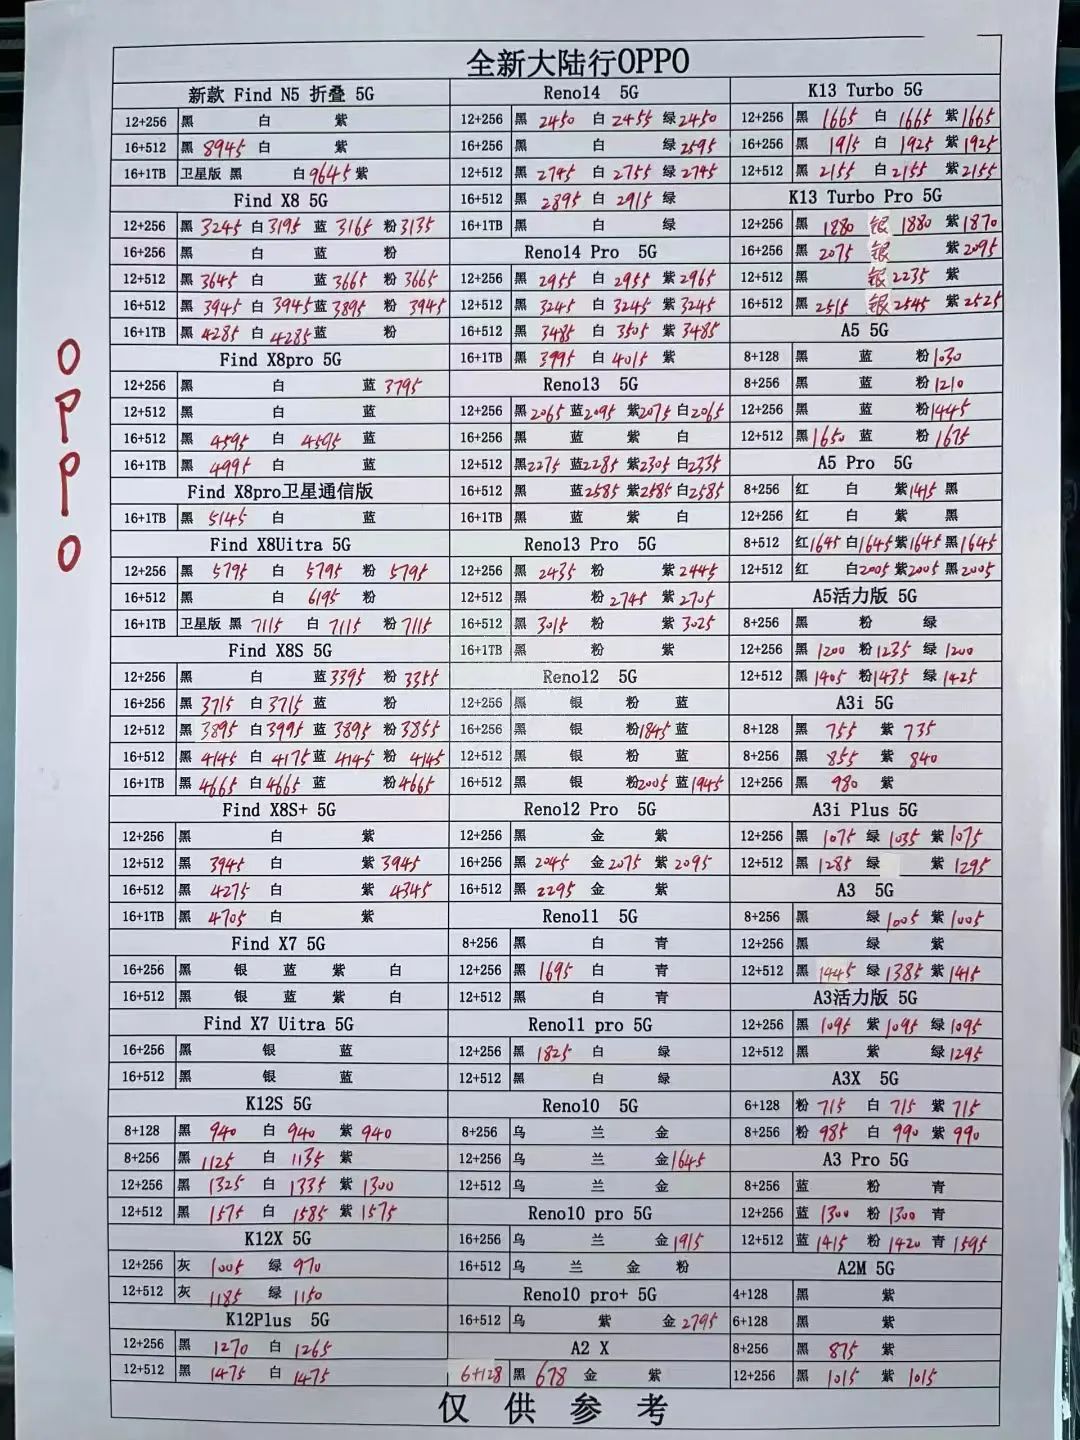 全新大陆行OPPO
OPPO
新款 Find N5 折叠 5G
12+256 黑 白 紫
16+512 黑 8945 白 紫
16+1TB 卫星版 黑 白 9645 紫
Find X8 5G
12+256 黑 3245 白 3195 蓝 3165 粉 3135
16+256 黑 白 蓝 粉
12+512 黑 3645 白 蓝 3665 粉 3665
16+512 黑 3945 白 3945 蓝 3895 粉 3945
16+1TB 黑 4285 白 4285 蓝 粉
Find X8pro 5G
12+256 黑 白 蓝 3795
12+512 黑 白 蓝
16+512 黑 4595 白 4595 蓝
16+1TB 黑 4995 白 蓝
Find X8pro卫星通信版
16+1TB 黑 5145 白 蓝
Find X8Uitra 5G
12+256 黑 5795 白 5795 粉 5795
16+512 黑 白 6195 粉
16+1TB 卫星版 黑 7115 白 7115 粉 7115
Find X8S 5G
12+256 黑 白 蓝 3395 粉 3355
16+256 黑 3715 白 3715 蓝 粉
12+512 黑 3895 白 3995 蓝 3895 粉 3855
16+512 黑 4145 白 4175 蓝 4145 粉 4145
16+1TB 黑 4665 白 4665 蓝 粉 4665
Find X8S+ 5G
12+256 黑 白 紫
12+512 黑 3945 白 紫 3945
16+512 黑 4275 白 紫 4345
16+1TB 黑 4705 白 紫
Find X7 5G
16+256 黑 银 蓝 紫 白
16+512 黑 银 蓝 紫 白
Find X7 Uitra 5G
16+256 黑 银 蓝
16+512 黑 银 蓝
K12S 5G
8+128 黑 940 白 940 紫 940
8+256 黑 1125 白 1135 紫
12+256 黑 1325 白 1335 紫 1300
12+512 黑 1575 白 1585 紫 1575
K12X 5G
12+256 灰 1005 绿 970
12+512 灰 1185 绿 1150
K12Plus 5G
12+256 黑 1270 白 1265
12+512 黑 1475 白 1475
Reno14 5G
12+256 黑 2450 白 2455 绿 2450
16+256 黑 白 绿 2595
12+512 黑 2745 白 2755 绿 2745
16+512 黑 2895 白 2915 绿
16+1TB 黑 白 绿
Reno14 Pro 5G
12+256 黑 2955 白 2955 紫 2965
12+512 黑 3245 白 3245 紫 3245
16+512 黑 3485 白 3505 紫 3485
16+1TB 黑 3995 白 4015 紫
Reno13 5G
12+256 黑 2065 蓝 2095 紫 2075 白 2065
16+256 黑 蓝 紫 白
12+512 黑 2275 蓝 2285 紫 2305 白 2335
16+512 黑 蓝 2585 紫 2585 白 2585
16+1TB 黑 蓝 紫 白
Reno13 Pro 5G
12+256 黑 2435 粉 紫 2445
12+512 黑 粉 2745 紫 2705
16+512 黑 3015 粉 紫 3025
16+1TB 黑 粉 紫
Reno12 5G
12+256 黑 银 粉 蓝
16+256 黑 银 粉 1845 蓝
12+512 黑 银 粉 蓝
16+512 黑 银 粉 2005 蓝 1945
Reno12 Pro 5G
12+256 黑 金 紫
16+256 黑 2045 金 2075 紫 2095
16+512 黑 2295 金 紫
Reno11 5G
8+256 黑 白 青
12+256 黑 1695 白 青
12+512 黑 白 青
Reno11 pro 5G
12+256 黑 1825 白 绿
12+512 黑 白 绿
Reno10 5G
8+256 乌 兰 金
12+256 乌 兰 金 1645
12+512 乌 兰 金
Reno10 pro 5G
16+256 乌 兰 金 1915
16+512 乌 兰 金 粉
Reno10 pro+ 5G
16+512 乌 紫 金 2795
A2 X
6+128 黑 678 金 紫
K13 Turbo 5G
12+256 黑 1665 白 1665 紫 1665
16+256 黑 1915 白 1925 紫 1925
12+512 黑 2155 白 2155 紫 2155
K13 Turbo Pro 5G
12+256 黑 1880 银 1880 紫 1870
16+256 黑 2075 银 紫 2095
12+512 黑 银 2235 紫
16+512 黑 2515 银 2545 紫 2525
A5 5G
8+128 黑 蓝 粉 1030
8+256 黑 蓝 粉 1210
12+256 黑 蓝 粉 1445
12+512 黑 1650 蓝 粉 1675
A5 Pro 5G
8+256 红 白 紫 1415 黑
12+256 红 白 紫 黑
8+512 红 1645 白 1645 紫 1645 黑 1645
12+512 红 白 2005 紫 2005 黑 2005
A5活力版 5G
8+256 黑 粉 绿
12+256 黑 1200 粉 1235 绿 1200
12+512 黑 1405 粉 1435 绿 1425
A3i 5G
8+128 黑 755 紫 735
8+256 黑 855 紫 840
12+256 黑 980 紫
A3i Plus 5G
12+256 黑 1075 绿 1035 紫 1075
12+512 黑 1285 绿 紫 1295
A3 5G
8+256 黑 绿 1005 紫 1005
12+256 黑 绿 紫
12+512 黑 1445 绿 1385 紫 1415
A3活力版 5G
12+256 黑 1095 紫 1095 绿 1095
12+512 黑 紫 绿 1295
A3X 5G
6+128 粉 715 白 715 紫 715
8+256 粉 985 白 990 紫 990
A3 Pro 5G
8+256 蓝 粉 青
12+256 蓝 1300 粉 1300 青
12+512 蓝 1415 粉 1420 青 1595
A2M 5G
4+128 黑 紫
6+128 黑 紫
8+256 黑 875 紫
12+256 黑 1015 紫 1015
仅供参考